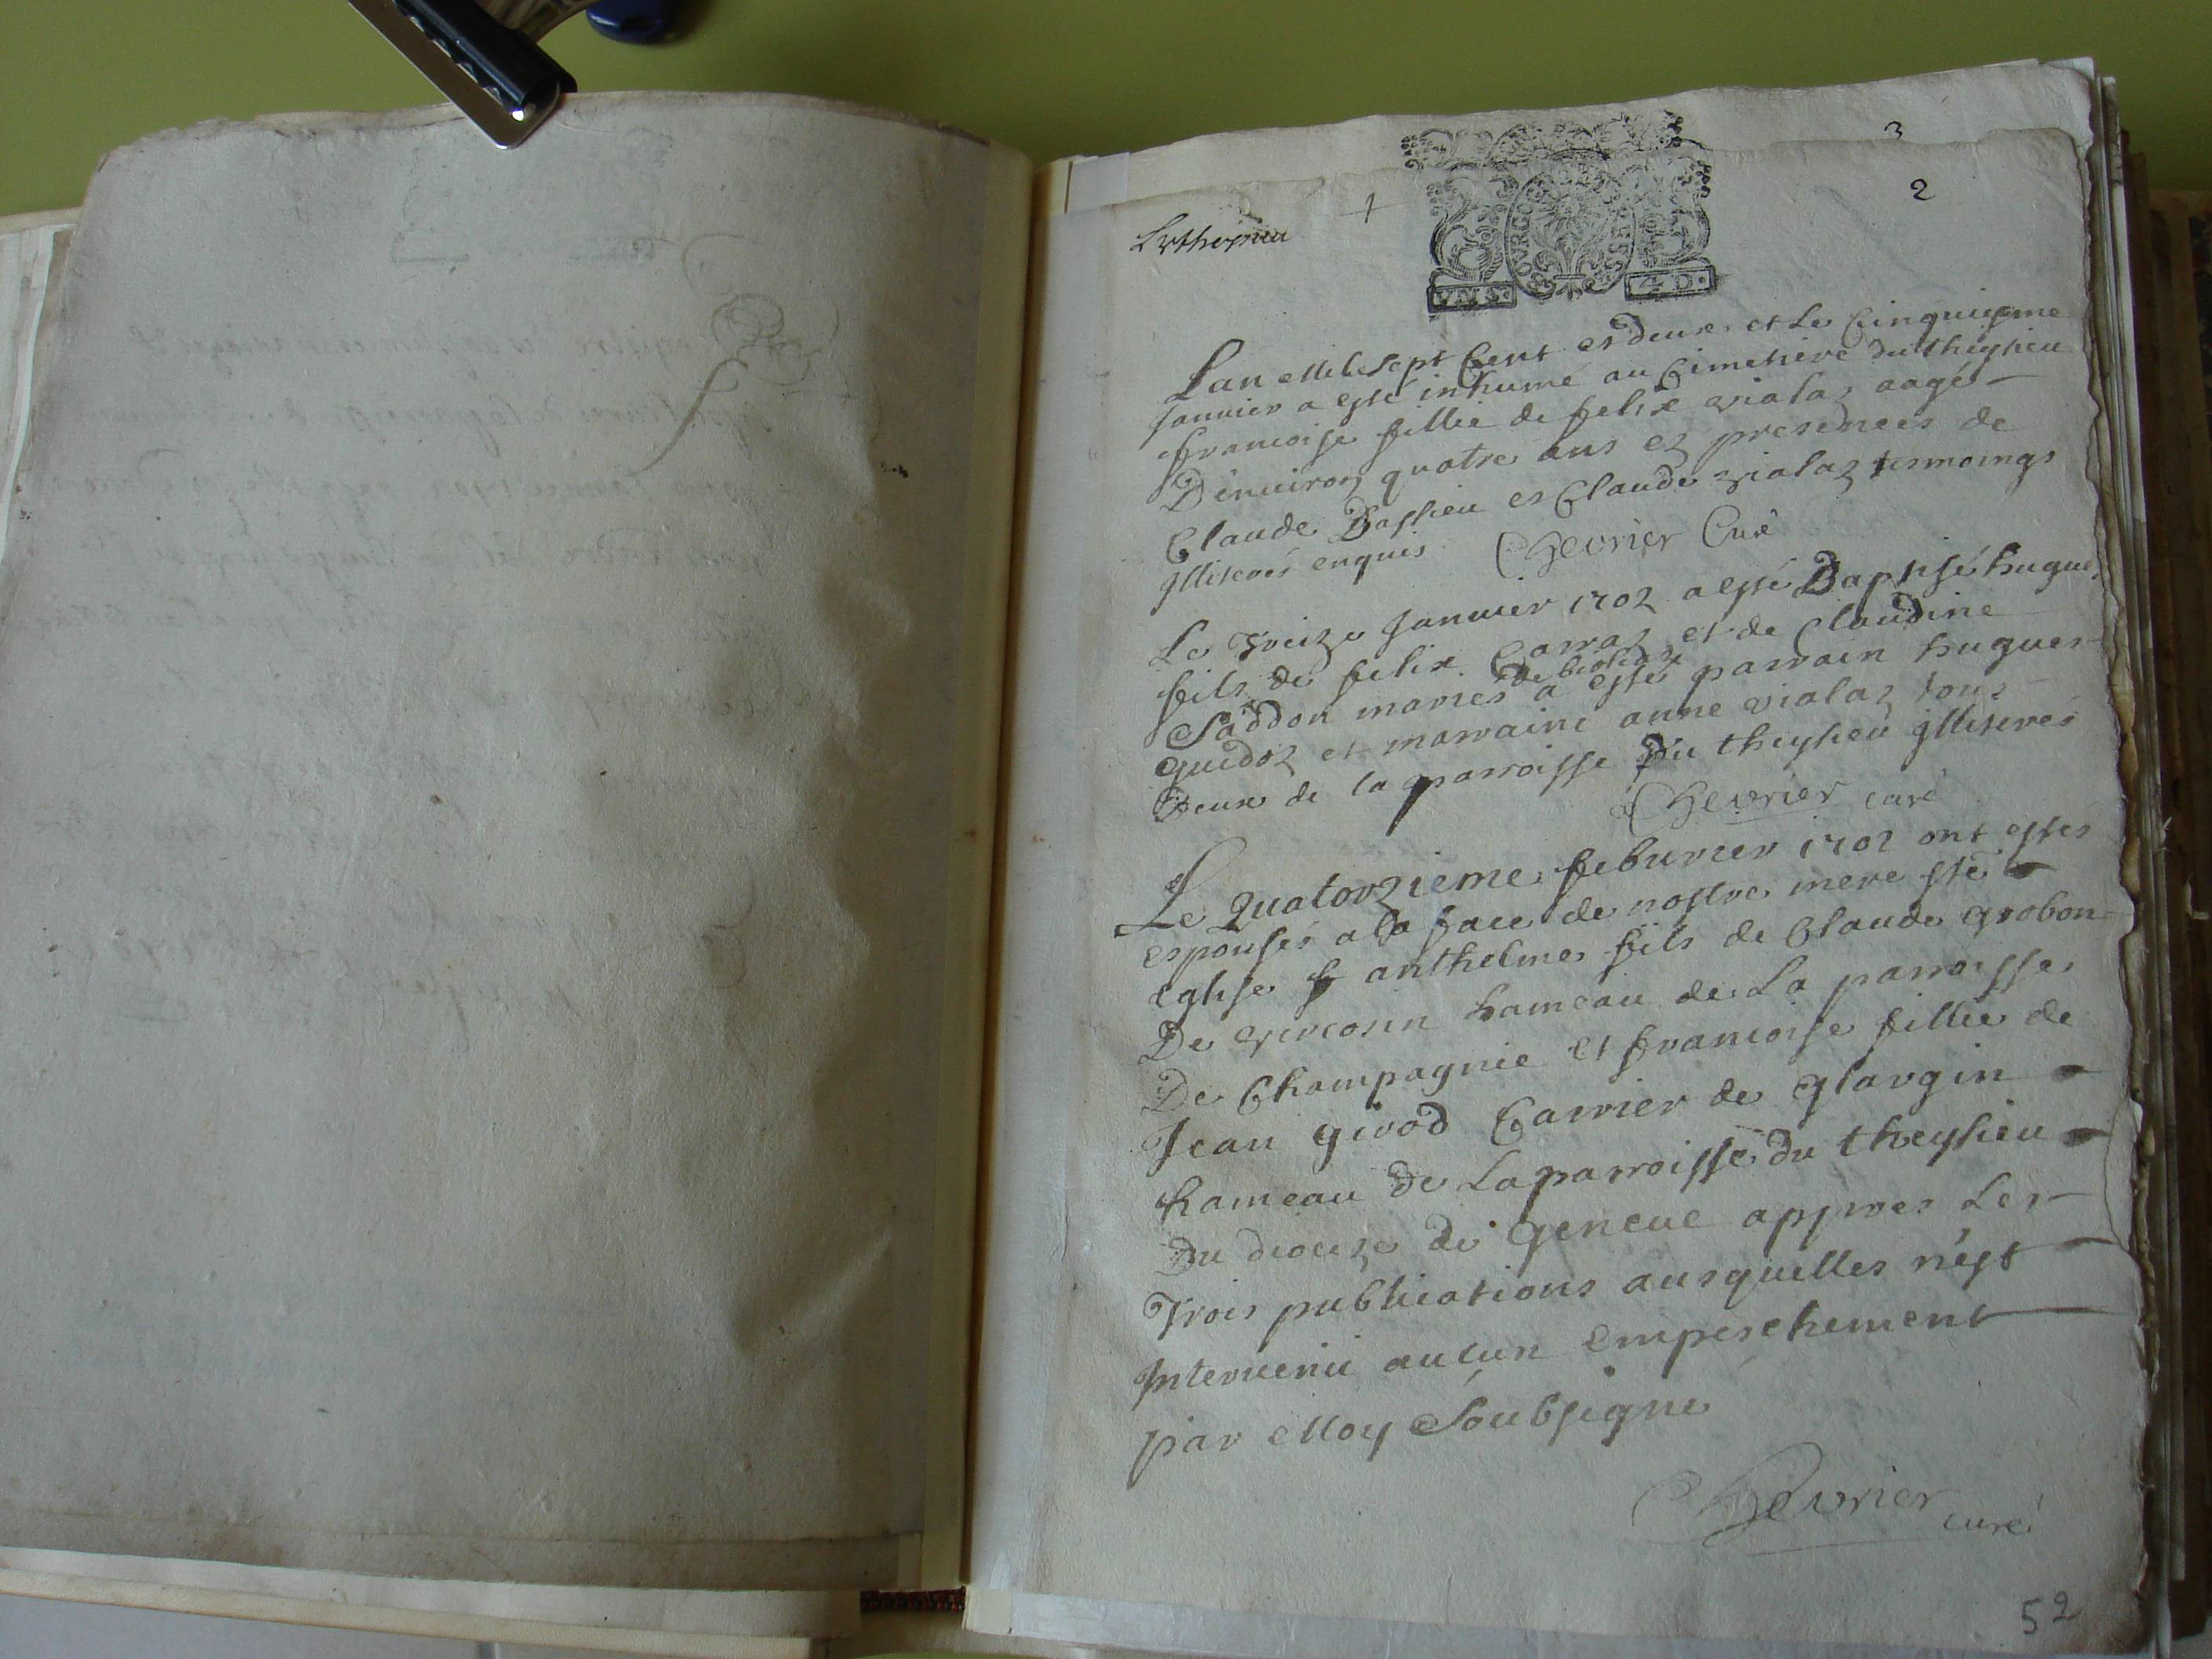 3
2
1
Lytheyssieu
BOURGOG BRESSE
UN S. 4 D.
Lan Mil sept Cent et deux et Le Cinquiesme
Januier a esté inhumé au Cimetiere du theysieu
francoise fillie de felix vialaz aagé
D'enuiron quatre ans ez presences de
Claude Bassieu et Claude vialaz tesmoings
Illiterés enquis Chevrier Curé
Le Treize Januier 1702 a esté Baptisé hugue
fils de felix Carraz et de Claudine
de
Saddon mariés a esté parrain hugues
guidoz et marraine anne vialaz tous
Deux de la parroisse Du theysieu Illiterés
Chevrier curé
Le Quatorzieme feburier 1702 ont estés
espousés a la face de nostre mere ste
eglise anthelme fils de Claude grobon
De vircosin hameau de La parroisse
De Champagnie et francoise fillie de
Jean girod Carrier de glargin
hameau de La parroisse du theysieu
Du diocese de Geneue appres Les
Trois publications ausquelles n'est
Interuenu aucun empeschement
par Moy Soubsigne
Chevrier curé
52